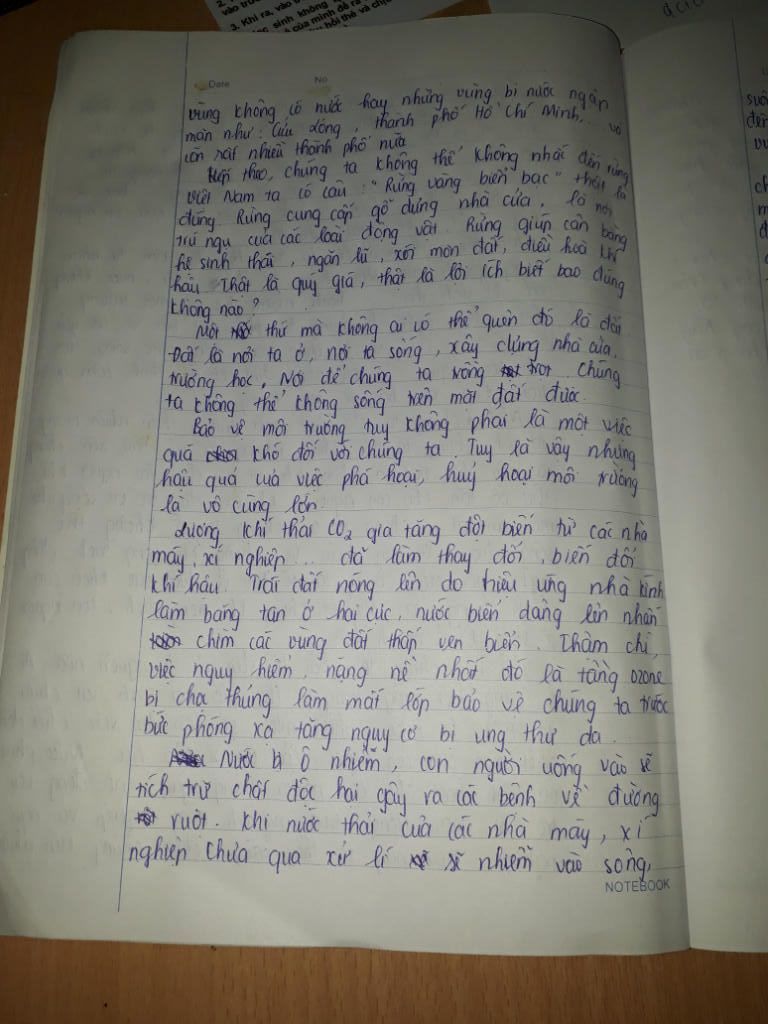 2.
vào trườ
3. Khi ra, vào tr
sinh không
của mình để ra
hồi thẻ và chịu
Date No
vùng không có nước hay những vùng bị nước ngập
mặn như: Cửu Long, thành phố Hồ Chí Minh... và
còn rất nhiều thành phố nữa
Tiếp theo, chúng ta không thể không nhắc đến rừng
Việt Nam ta có câu: "Rừng vàng biển bạc" thật là
đúng. Rừng cung cấp gỗ dựng nhà cửa, là nơi
trú ngụ của các loài động vật. Rừng giúp cân bằng
hệ sinh thái, ngăn lũ, xói mòn đất, điều hoà khí
hậu. Thật là quý giá, thật là lợi ích biết bao đúng
không nào?
Một thứ mà không ai có thể quên đó là đất
Đất là nơi ta ở, nơi ta sống, xây dựng nhà cửa,
trường học, Nơi để chúng ta trồng trọt. Chúng
ta không thể không sống trên mặt đất được.
Bảo vệ môi trường tuy không phải là một việc
quá khó đối với chúng ta. Tuy là vậy nhưng
hậu quả của việc phá hoại, huỷ hoại môi trường
là vô cùng lớn
Lượng khí thải CO2 gia tăng đột biến từ các nhà
máy, xí nghiệp... đã làm thay đổi, biến đổi
khí hậu. Trái đất nóng lên do hiệu ứng nhà kính
làm băng tan ở hai cực, nước biển dâng lên nhấn
chìm các vùng đất thấp ven biển. Thậm chí,
việc nguy hiểm, nặng nề nhất đó là tầng ozone
bị chọc thủng làm mất lớp bảo vệ chúng ta trước
bức phóng xạ tăng nguy cơ bị ung thư da.
Nước bị ô nhiễm, con người uống vào sẽ
tích trữ chất độc hại gây ra các bệnh về đường
ruột. Khi nước thải của các nhà máy, xí
nghiệp chưa qua xử lí sẽ nhiễm vào sông,
NOTEBOOK